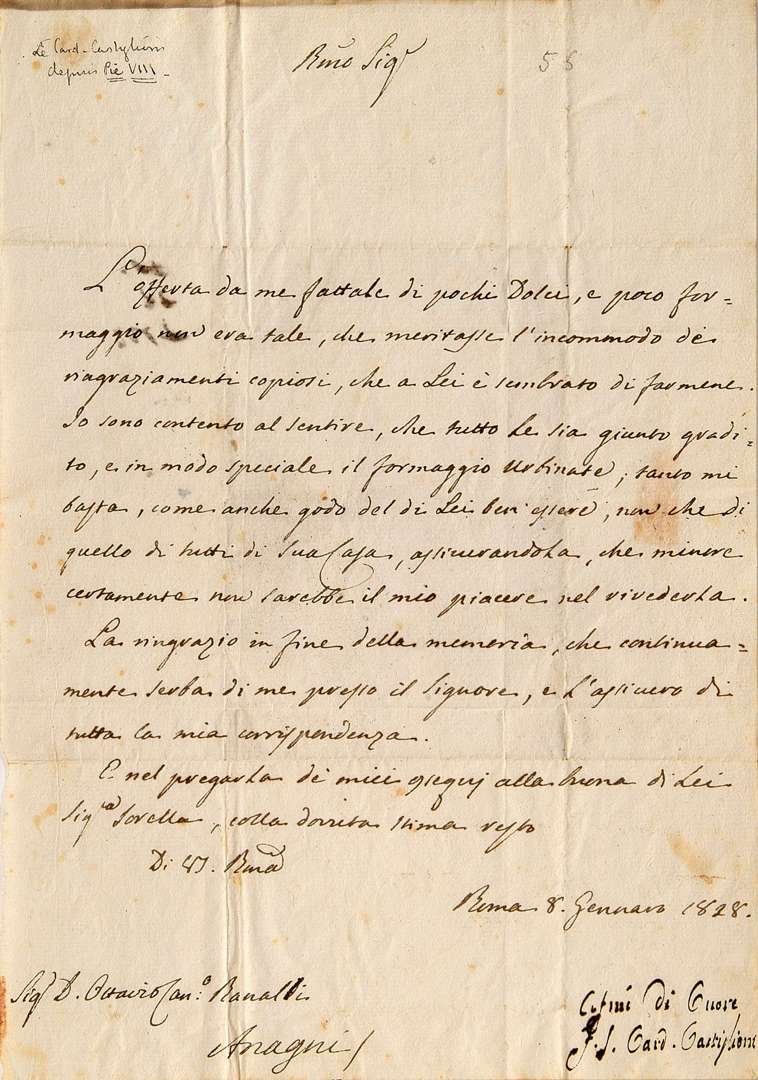 Le Card. Castiglioni
depuis Pie VIII
Rmo Sigr
L'offerta da me fattale di pochi Dolci, e poco for=
maggio non era tale, che meritasse l'incommodo de
ringraziamenti copiosi, che a Lei è sembrato di farmene.
Io sono contento al sentire, che tutto Le sia giunto gradi=
to, e in modo speciale il formaggio Urbinate; tanto mi
basta, come anche godo del di Lei ben essere, non che di
quello di tutti di Sua Casa, assicurandola, che minore
certamente non sarebbe il mio piacere nel rivederla.
La ringrazio in fine della memoria, che continua=
mente serba di me presso il Signore, e L'assicuro di
tutta la mia corrispondenza.
E nel pregarla de miei ossequj alla buona di Lei
Sigra Sorella, colla dovuta stima resto
Di V.S. Rma
Roma 8. Gennaro 1828.
Sigr D. Ottavio Can:o Ranaldi
Anagni
di Cuore
Card. Castiglioni